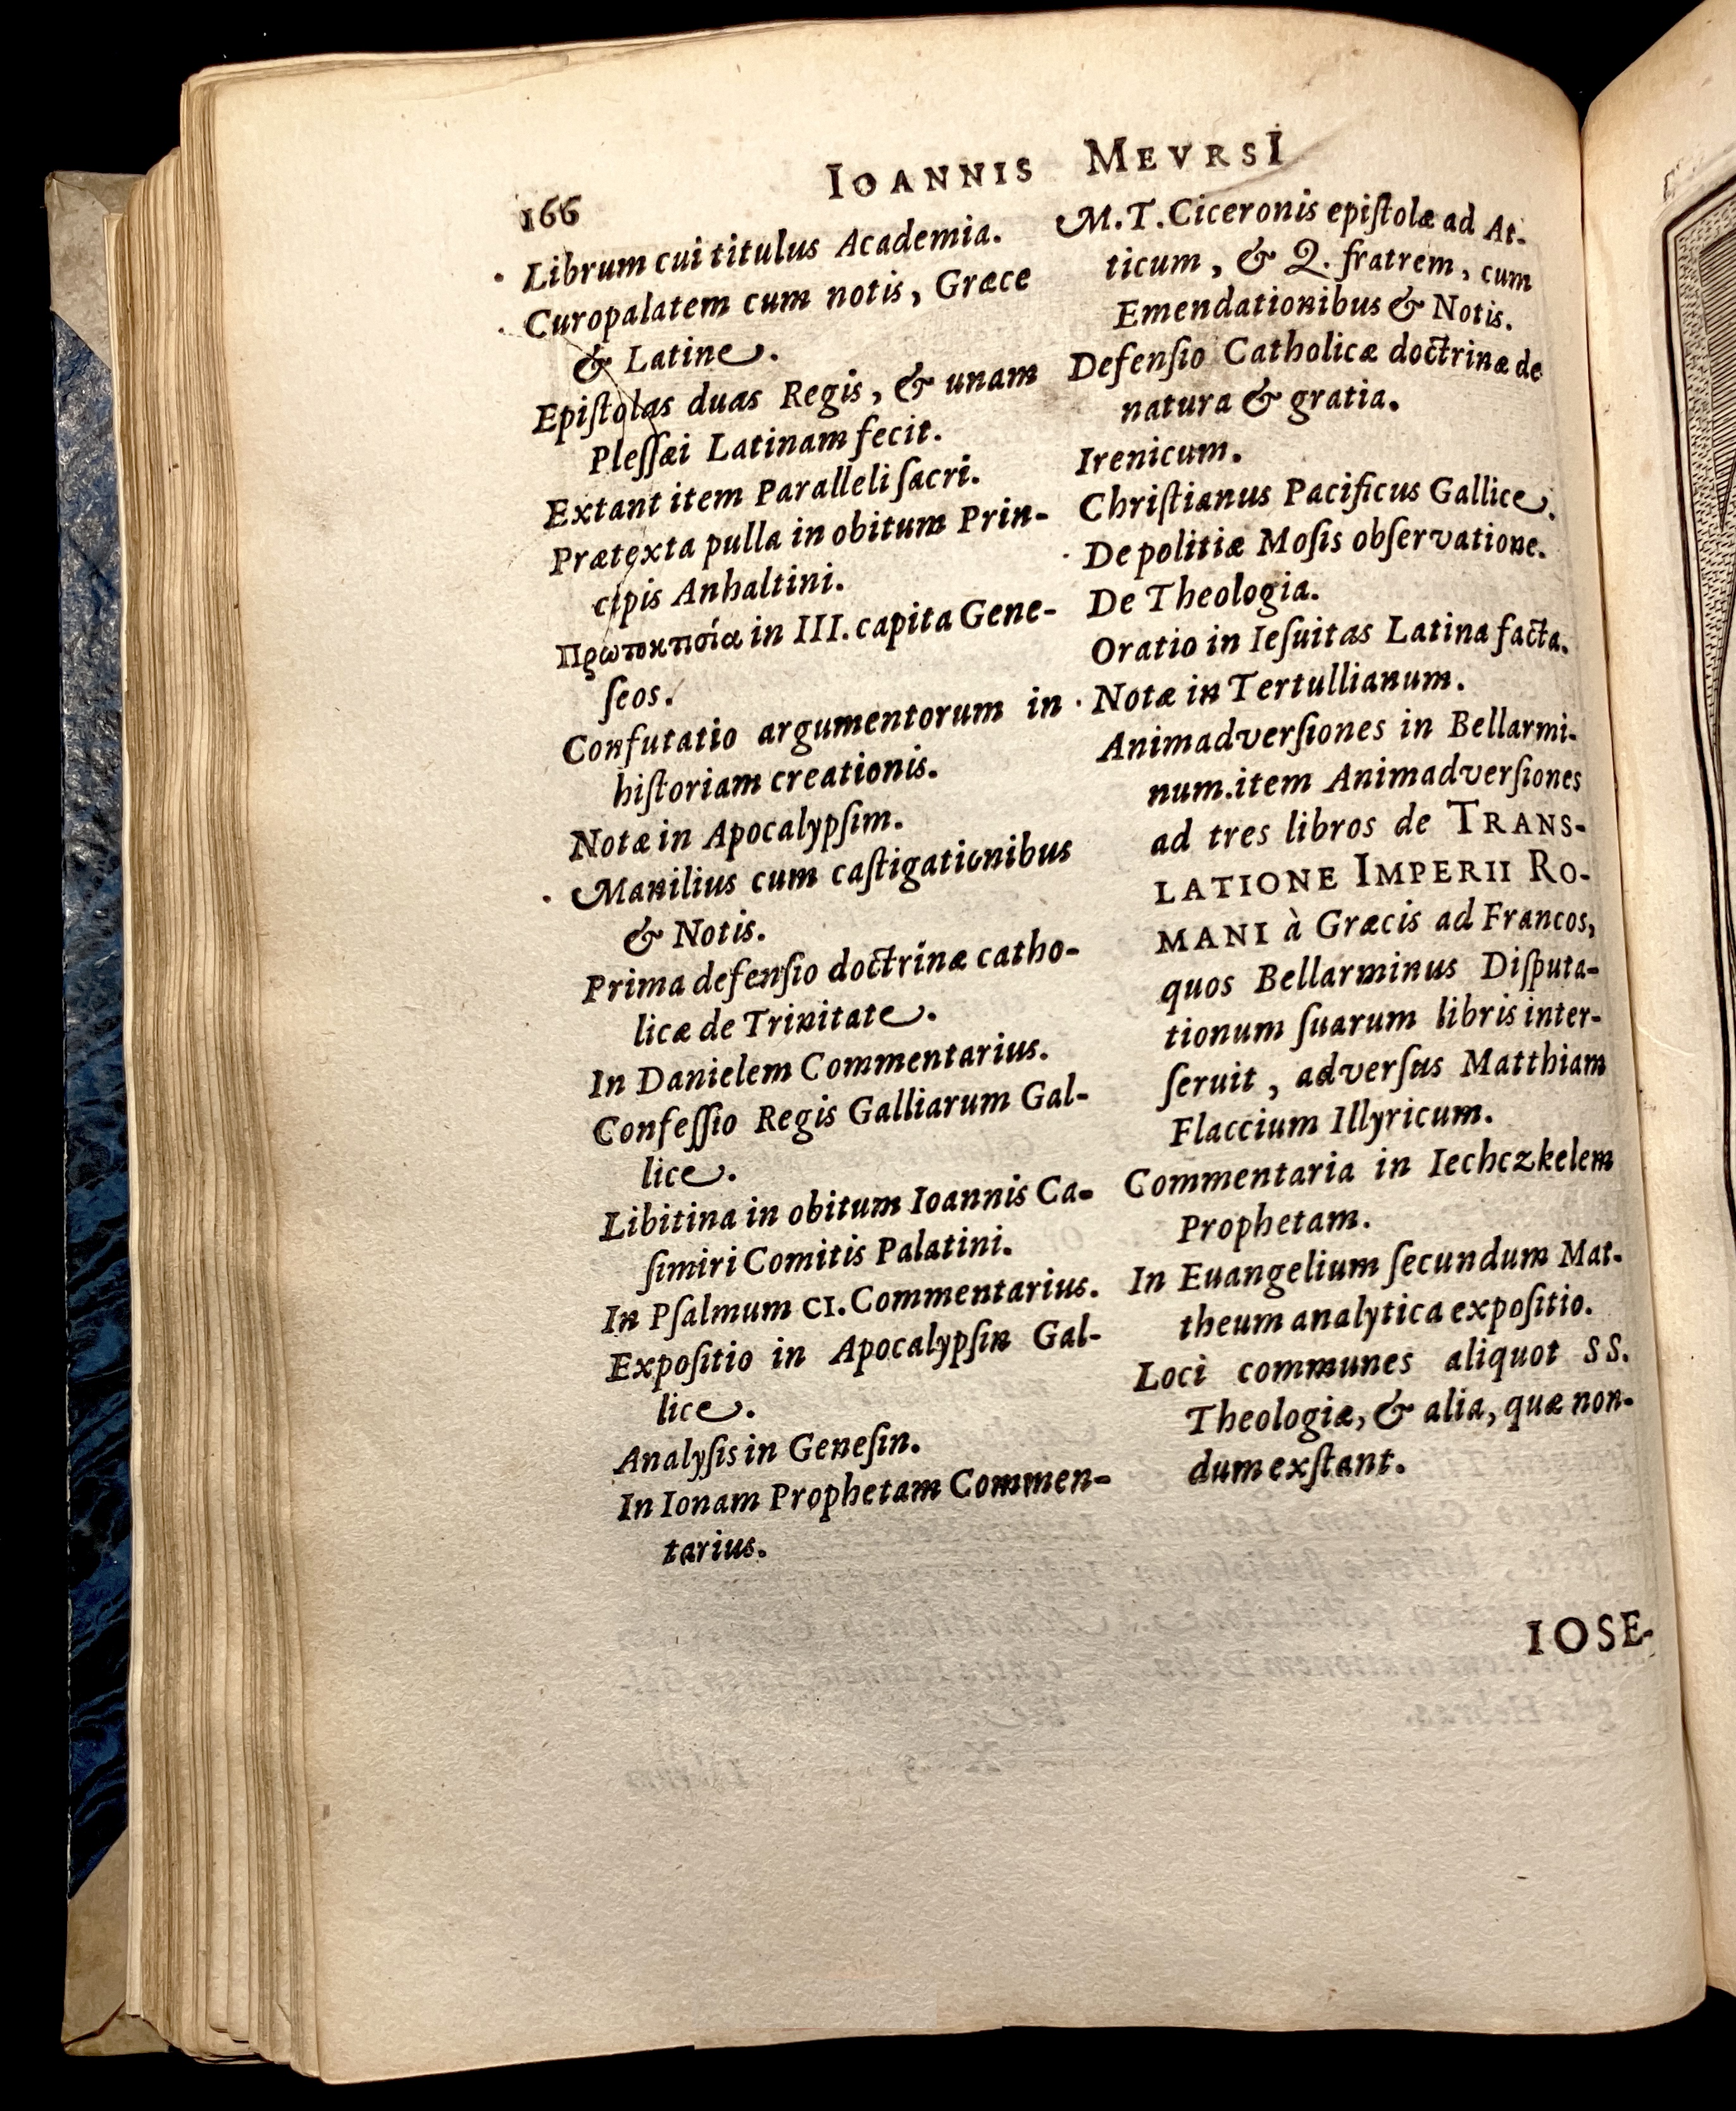 166
IOANNIS MEVRSI
Librum cui titulus Academia.
Curopalatem cum notis, Græce
& Latine.
Epiſtolas duas Regis, & unam
Pleſſæi Latinam fecit.
Extant item Paralleli ſacri.
Prætexta pulla in obitum Prin-
cipis Anhaltini.
Πρωτοκτισία in III. capita Gene-
ſeos.
Confutatio argumentorum in
hiſtoriam creationis.
Notæ in Apocalypſim.
Manilius cum caſtigationibus
& Notis.
Prima defenſio doctrinæ catho-
licæ de Trinitate.
In Danielem Commentarius.
Confeſſio Regis Galliarum Gal-
lice.
Libitina in obitum Ioannis Ca-
ſimiri Comitis Palatini.
In Pſalmum CI. Commentarius.
Expoſitio in Apocalypſin Gal-
lice.
Analyſis in Geneſin.
In Ionam Prophetam Commen-
tarius.
M. T. Ciceronis epiſtolæ ad At-
ticum, & Q. fratrem, cum
Emendationibus & Notis.
Defenſio Catholicæ doctrinæ de
natura & gratia.
Irenicum.
Chriſtianus Pacificus Gallice.
De politiæ Moſis obſervatione.
De Theologia.
Oratio in Ieſuitas Latina facta.
Notæ in Tertullianum.
Animadverſiones in Bellarmi-
num. item Animadverſiones
ad tres libros de TRANS-
LATIONE IMPERII RO-
MANI à Græcis ad Francos,
quos Bellarminus Diſputa-
tionum ſuarum libris inter-
ſeruit, adverſus Matthiam
Flaccium Illyricum.
Commentaria in Iechczkelem
Prophetam.
In Euangelium ſecundum Mat-
theum analytica expoſitio.
Loci communes aliquot SS.
Theologiæ, & alia, quæ non-
dum exſtant.
IOSE-